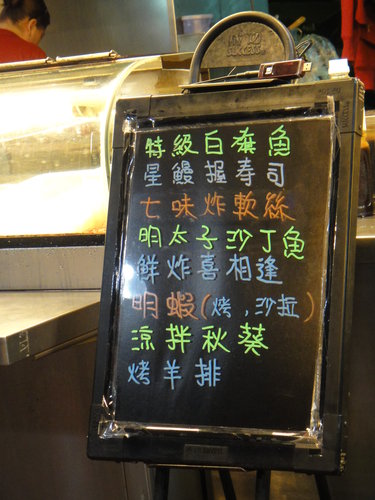 特級白旗魚
星鰻握壽司
七味炸軟絲
明太子沙丁魚
鮮炸喜相逢
明蝦(烤,沙拉)
涼拌秋葵
烤羊排